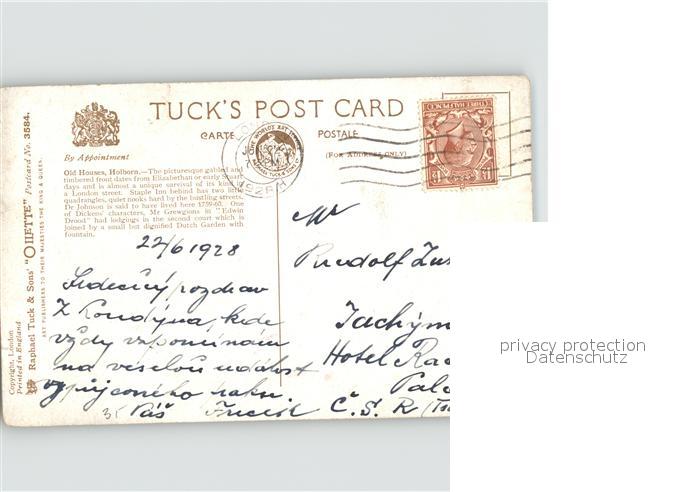 TUCK'S POST CARD
CARTE POSTALE
(FOR ADDRESS ONLY)
By Appointment
Old Houses, Holborn.—The picturesque gabled and
timbered front dates from Elizabethan or early Stuart
days and is almost a unique survival of its kind in
a London street. Staple Inn behind has two little
quadrangles, quiet nooks hard by the bustling streets.
Dr Johnson is said to have lived here 1759-60. One
of Dickens' characters, Mr Grewgions in "Edwin
Drood" had lodgings in the second court which is
joined by a small but dignified Dutch Garden with
fountain.
Copyright, London
Printed in England
Raphael Tuck & Sons' "OILETTE" Postcard No. 3584.
ART PUBLISHERS TO THEIR MAJESTIES THE KING & QUEEN.
THREE HALFPENCE
1928
22/6 1928
Srdečný pozdrav
Z Londýna, kde
vždy vzpomínám
na veselou událost
Váš
Mr
Rudolf
Jáchym
Hotel
Č.S.R
privacy protection
Datenschutz